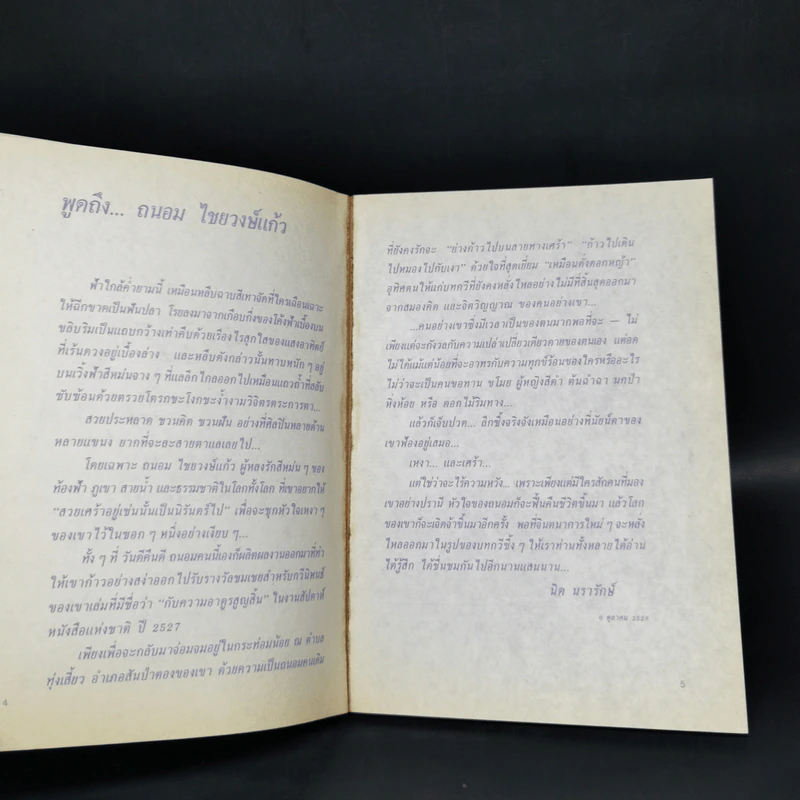 พูดถึง... ถนอม ไชยวงษ์แก้ว
ฟ้าใกล้ค่ำยามนี้ เหมือนหลืบฉาบสีเทาจัดที่ใครเฉือนเฉาะ
ให้ฉีกขาดเป็นฟันปลา โรยลงมาจากเกือบกึ่งของโค้งฟ้าเบื้องบน
ขลิบริมเป็นแถบกว้างเท่าคืบด้วยเรืองไรสุกใสของแสงอาทิตย์
ที่เร้นดวงอยู่เบื้องล่าง และหลืบดังกล่าวนั้นทาบหนัก ๆ อยู่
บนเวิ้งฟ้าสีหม่นจาง ๆ ที่แลลึกไกลออกไปเหมือนแถวถ้ำที่สลับ
ซับซ้อนด้วยตรวยโตรกชะโงกชะง้ำงามวิจิตรตระการตา...
สวยประหลาด ชวนคิด ชวนฝัน อย่างที่ศิลปินหลายด้าน
หลายแขนง ยากที่จะละสายตาแลเลยไป...
โดยเฉพาะ ถนอม ไชยวงษ์แก้ว ผู้หลงรักสีหม่น ๆ ของ
ท้องฟ้า ภูเขา สายน้ำ และธรรมชาติในโลกทั้งโลก ที่เขาอยากให้
"สวยเศร้าอยู่เช่นนั้นเป็นนิรันดร์ไป" เพื่อจะซุกหัวใจเหงา ๆ
ของเขาไว้ในซอก ๆ หนึ่งอย่างเงียบ ๆ...
ทั้ง ๆ ที่ วันดีคืนดี ถนอมคนนี้เองก็ผลิตผลงานออกมาที่ทำ
ให้เขาก้าวอย่างสง่าออกไปรับรางวัลชมเชยสำหรับกวีนิพนธ์
ของเขาเล่มที่มีชื่อว่า "กับความอาดูรสูญสิ้น" ในงานสัปดาห์
หนังสือแห่งชาติ ปี 2527
เพียงเพื่อจะกลับมาจ่อมจมอยู่ในกระท่อมน้อย ณ ตำบล
ทุ่งเสี้ยว อำเภอสันป่าตองของเขา ด้วยความเป็นถนอมคนเดิม
4
ที่ยังคงรักจะ "ย่างก้าวไปบนสายทางเศร้า" "ก้าวไปเดิน
ไปหมองไปกับเงา" ด้วยใจที่สุดเยี่ยม "เหมือนดั่งดอกหญ้า"
อุทิศตนให้แก่บทกวีที่ยังคงหลั่งไหลอย่างไม่มีที่สิ้นสุดออกมา
จากสมองคิด และจิตวิญญาณ ของคนอย่างเขา...
...คนอย่างเขาซึ่งมีเวลาเป็นของตนมากพอที่จะ — ไม่
เพียงแต่จะกังวลกับความเปล่าเปลี่ยวเดียวดายของตนเอง แต่อด
ไม่ได้แม้แต่น้อยที่จะอาทรกับความทุกข์ร้อนของใครหรืออะไร
ไม่ว่าจะเป็นคนขอทาน ขโมย ผู้หญิงสีดำ ต้นฉำฉา นกป่า
หิ่งห้อย หรือ ดอกไม้ริมทาง...
แล้วก็เจ็บปวด... ลึกซึ้งจริงจังเหมือนอย่างที่นัยน์ตาของ
เขาฟ้องอยู่เสมอ...
เหงา... และเศร้า...
แต่ใช่ว่าจะไร้ความหวัง... เพราะเพียงแต่มีใครสักคนที่มอง
เขาอย่างปรานี หัวใจของถนอมก็จะฟื้นคืนชีวิตขึ้นมา แล้วโลก
ของเขาก็จะเจิดจ้าขึ้นมาอีกครั้ง พอที่จินตนาการใหม่ ๆ จะหลั่ง
ไหลออกมาในรูปของบทกวีซึ้ง ๆ ให้เราท่านทั้งหลายได้อ่าน
ได้รู้สึก ได้ชื่นชมกันไปอีกนานแสนนาน...
นิด นรารักษ์
ตุลาคม
5